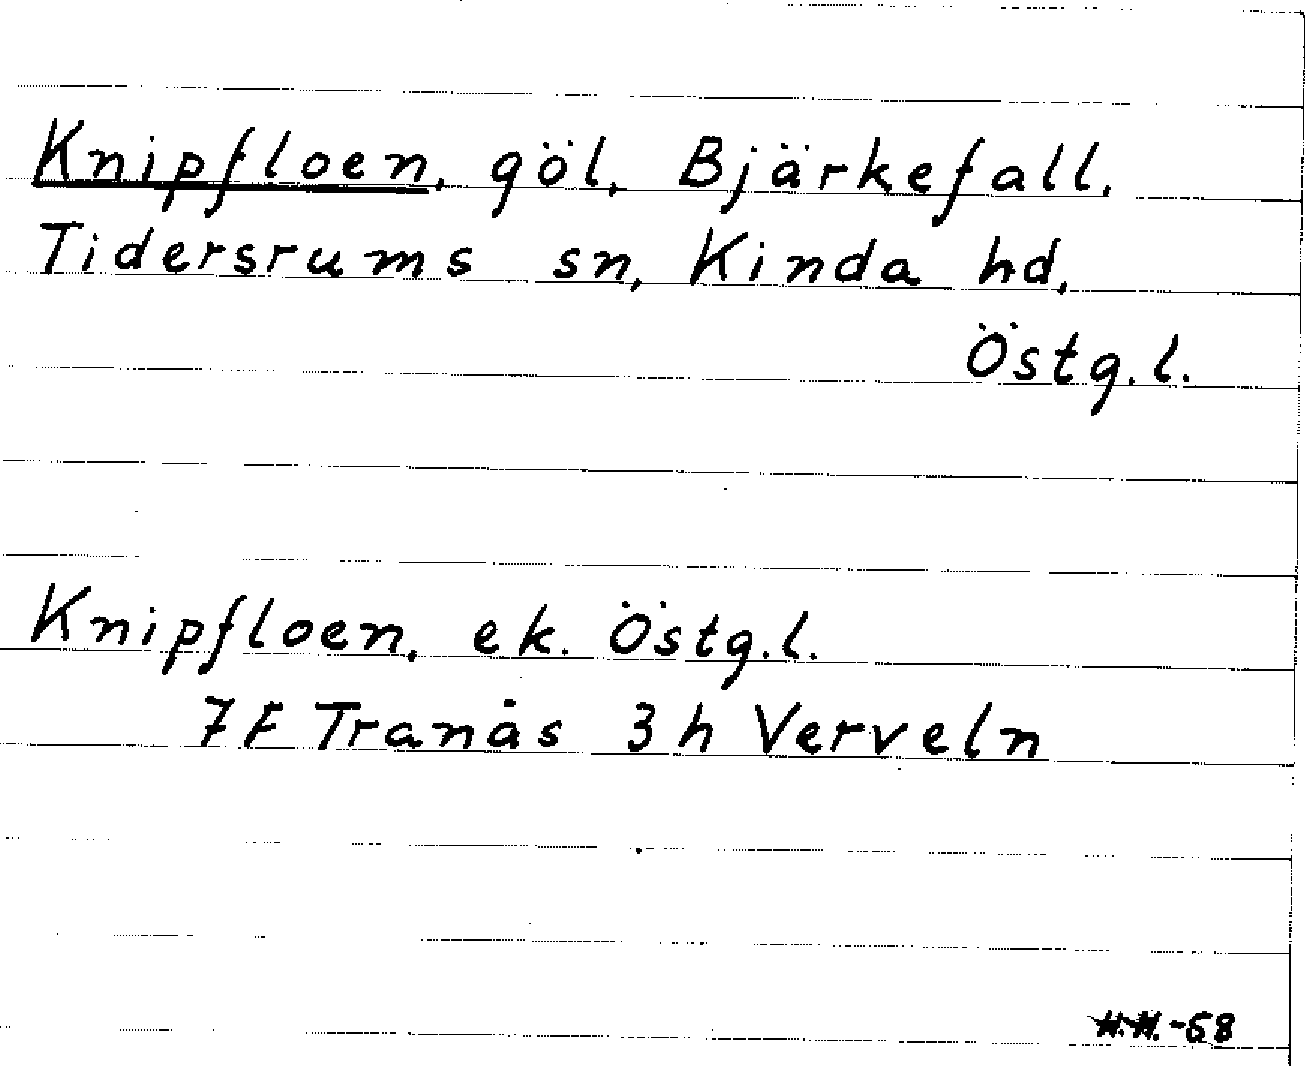 Knipfloen, göl, Bjärkefall,
Tidersrums sn, Kinda hd,
Östg.l.
Knipfloen, ek. Östg.l.
7F Tranås 3h Verveln
-58